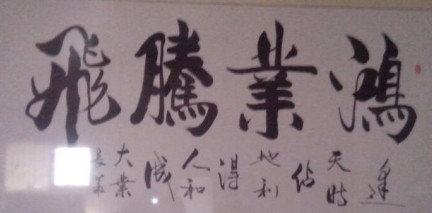 鴻業騰飛
逢天時佔地利得人和成大業